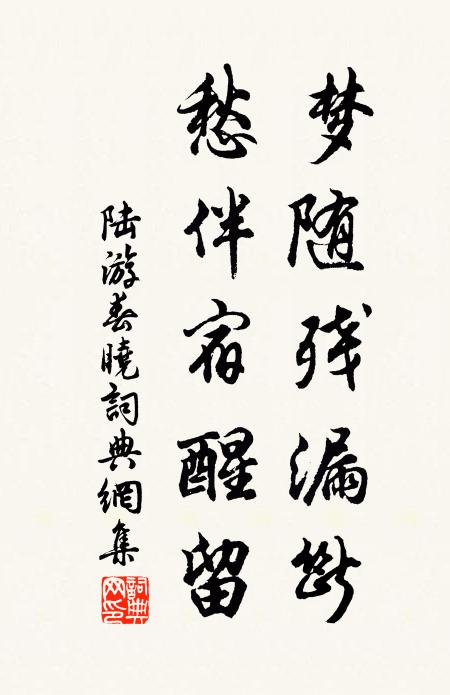 梦随残漏断
愁伴宿醒留
陆游春晓詞典網集
詞典网印